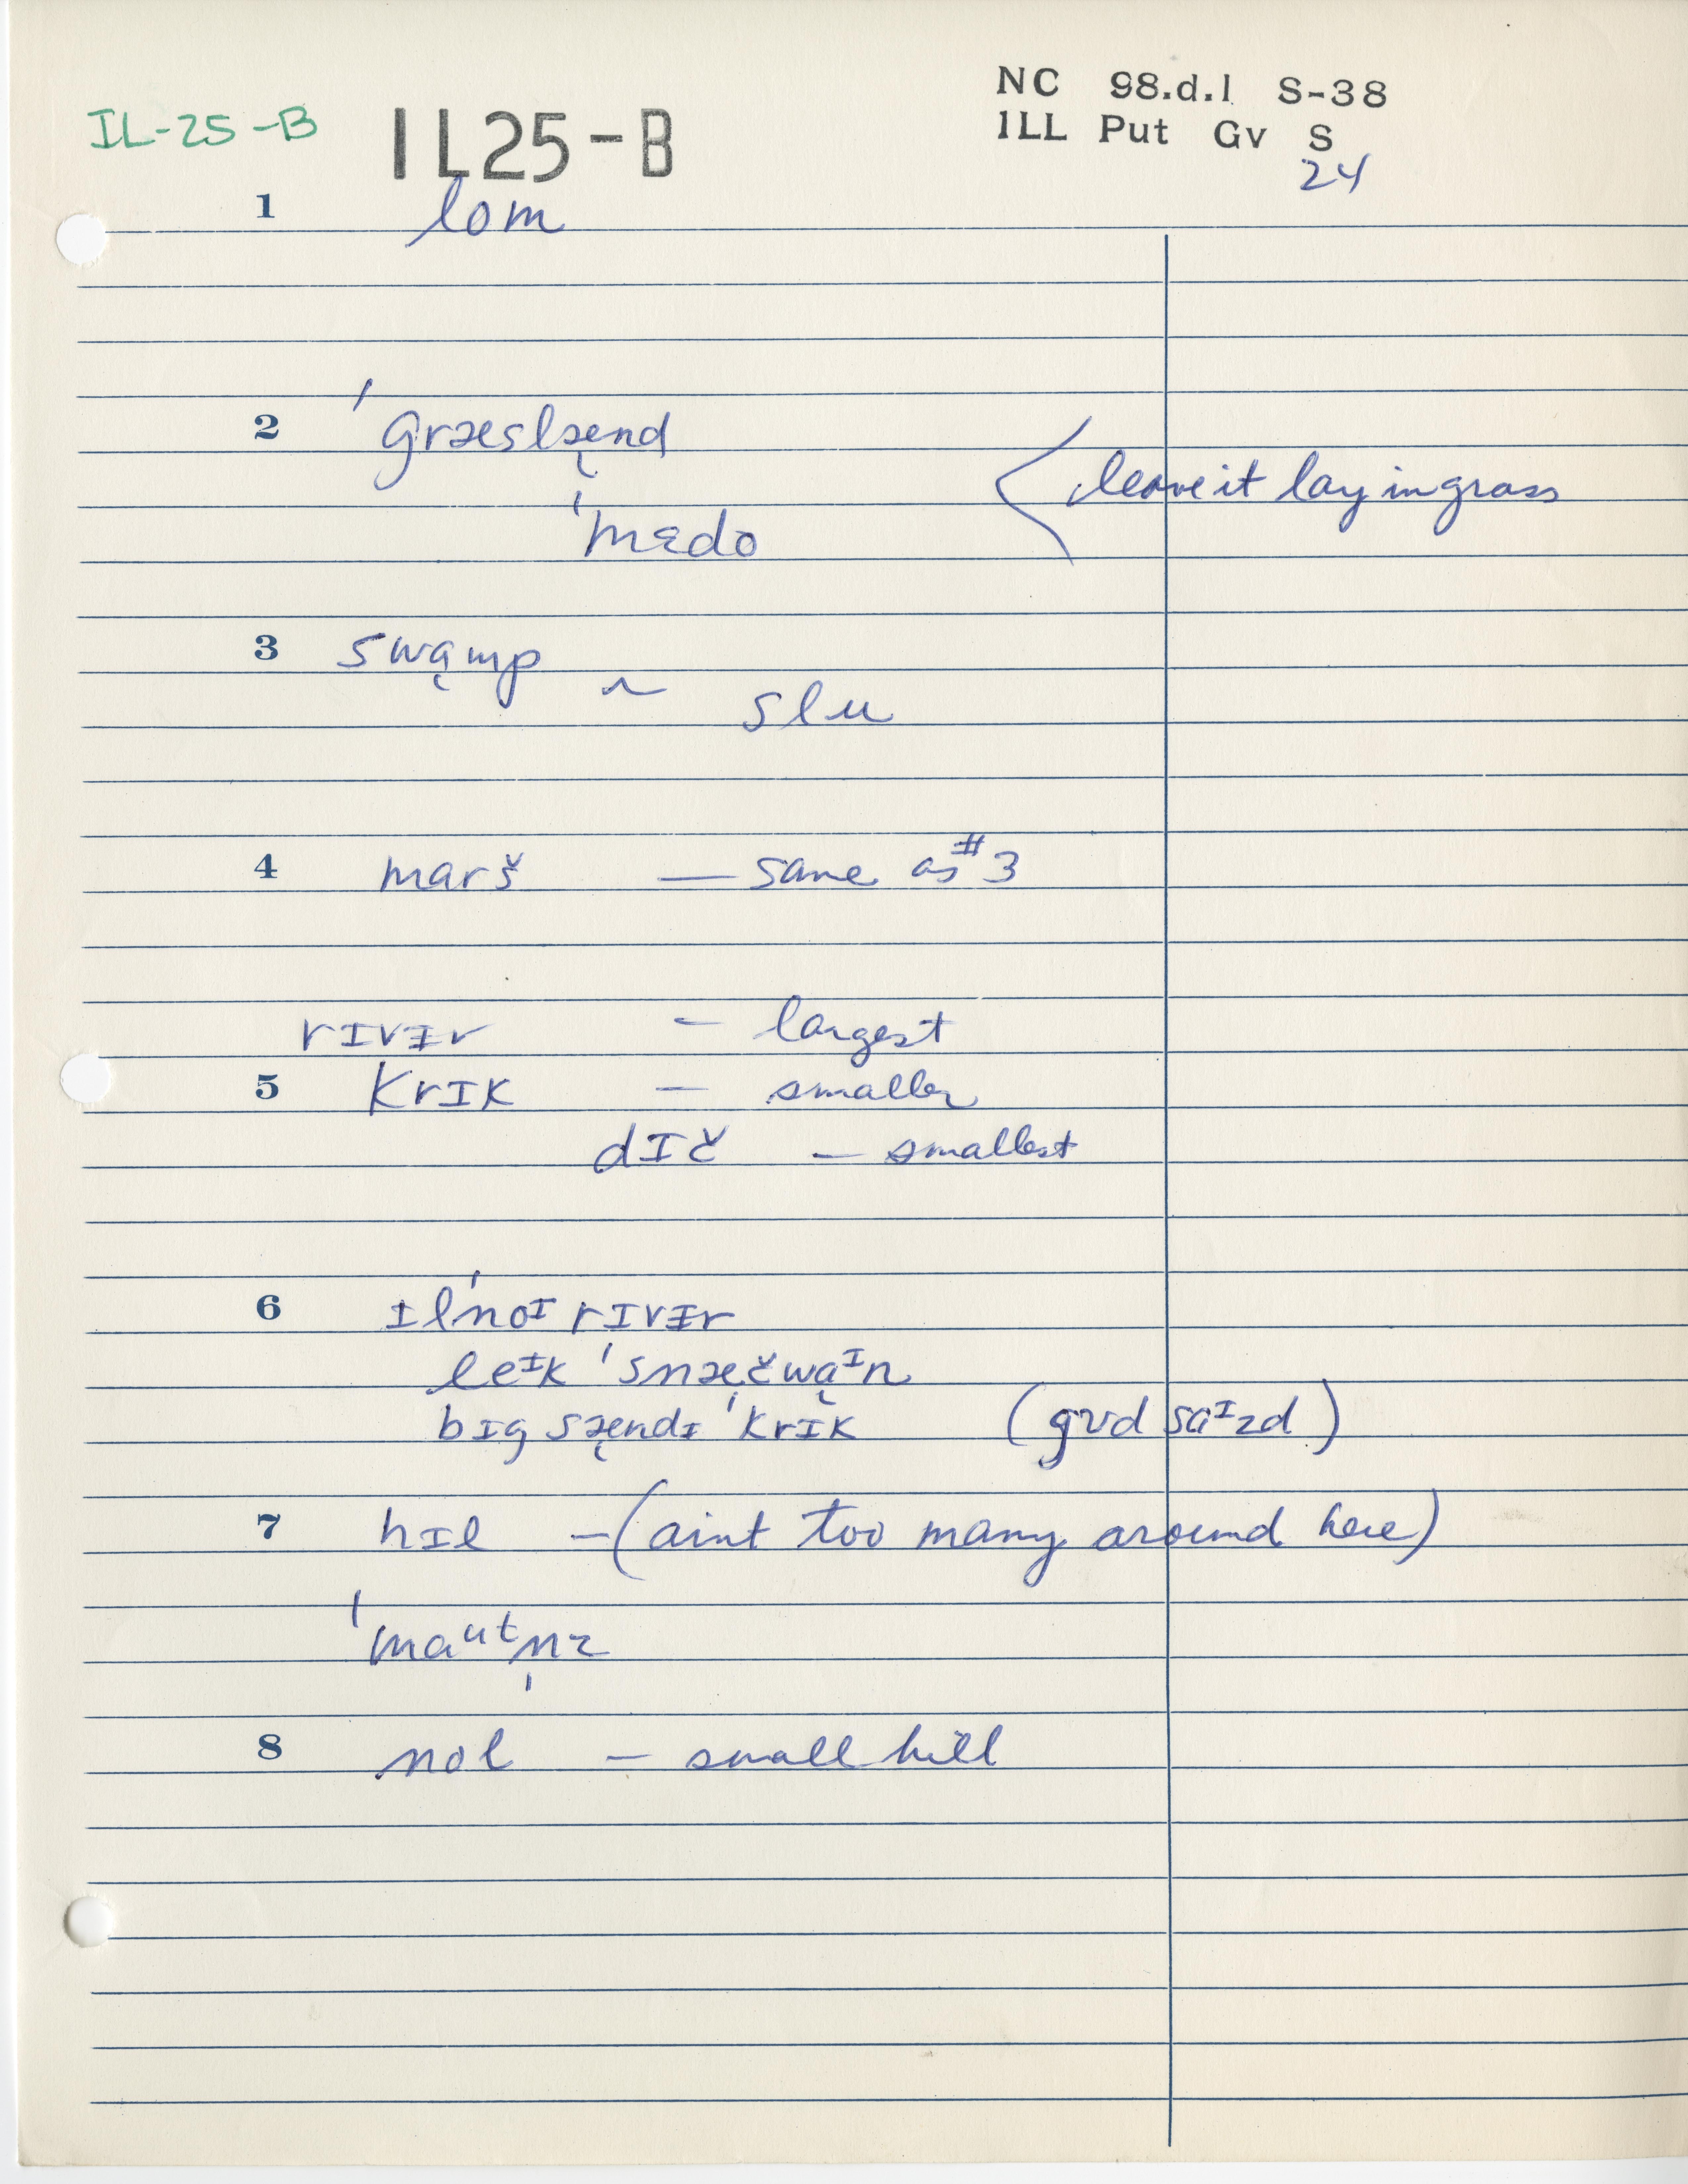 IL-25-B IL25-B NC 98.d.1 S-38
ILL Put Gv S
24
1 lom
2 'græslæ̨nd
leave it lay in grass
'mɛdo
3 swąmp ~ slu
4 marš — same as #3
rɪvɪ̵r – largest
5 krɪk — smaller
dɪč — smallest
6 ɪl'noᶦ rɪvɪ̵r
leᶦk 'snæ̨čwąᶦn
bɪg sæ̨ndɪ 'krɪk (gʊd saᶦzd)
7 hɪl – (aint too many around here)
'maᵘᵗn̩z
8 nol — small hill